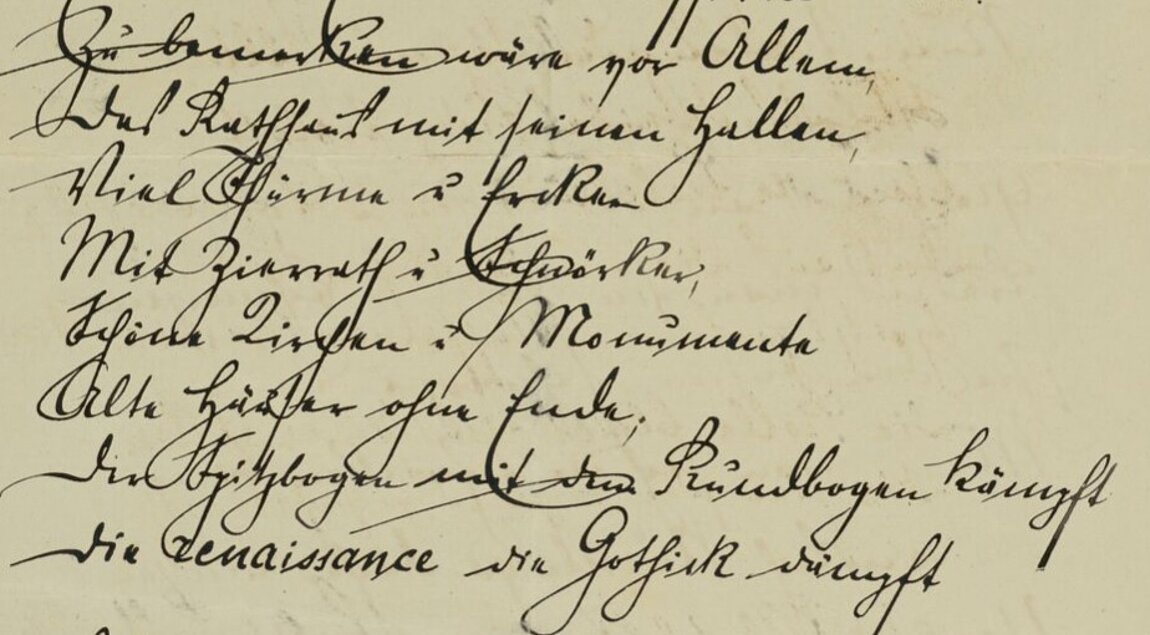 Zu bemerken wäre vor Allem,
Das Rathhaus mit seinen Hallen,
Viel Thürme u Ercker
Mit Zierrath u Schnörker,
Schöne Kirchen u Monumente
Alte Häuser ohne Ende;
Der Spitzbogen mit dem Rundbogen kämpft
Die renaissance die Gothick dämpft